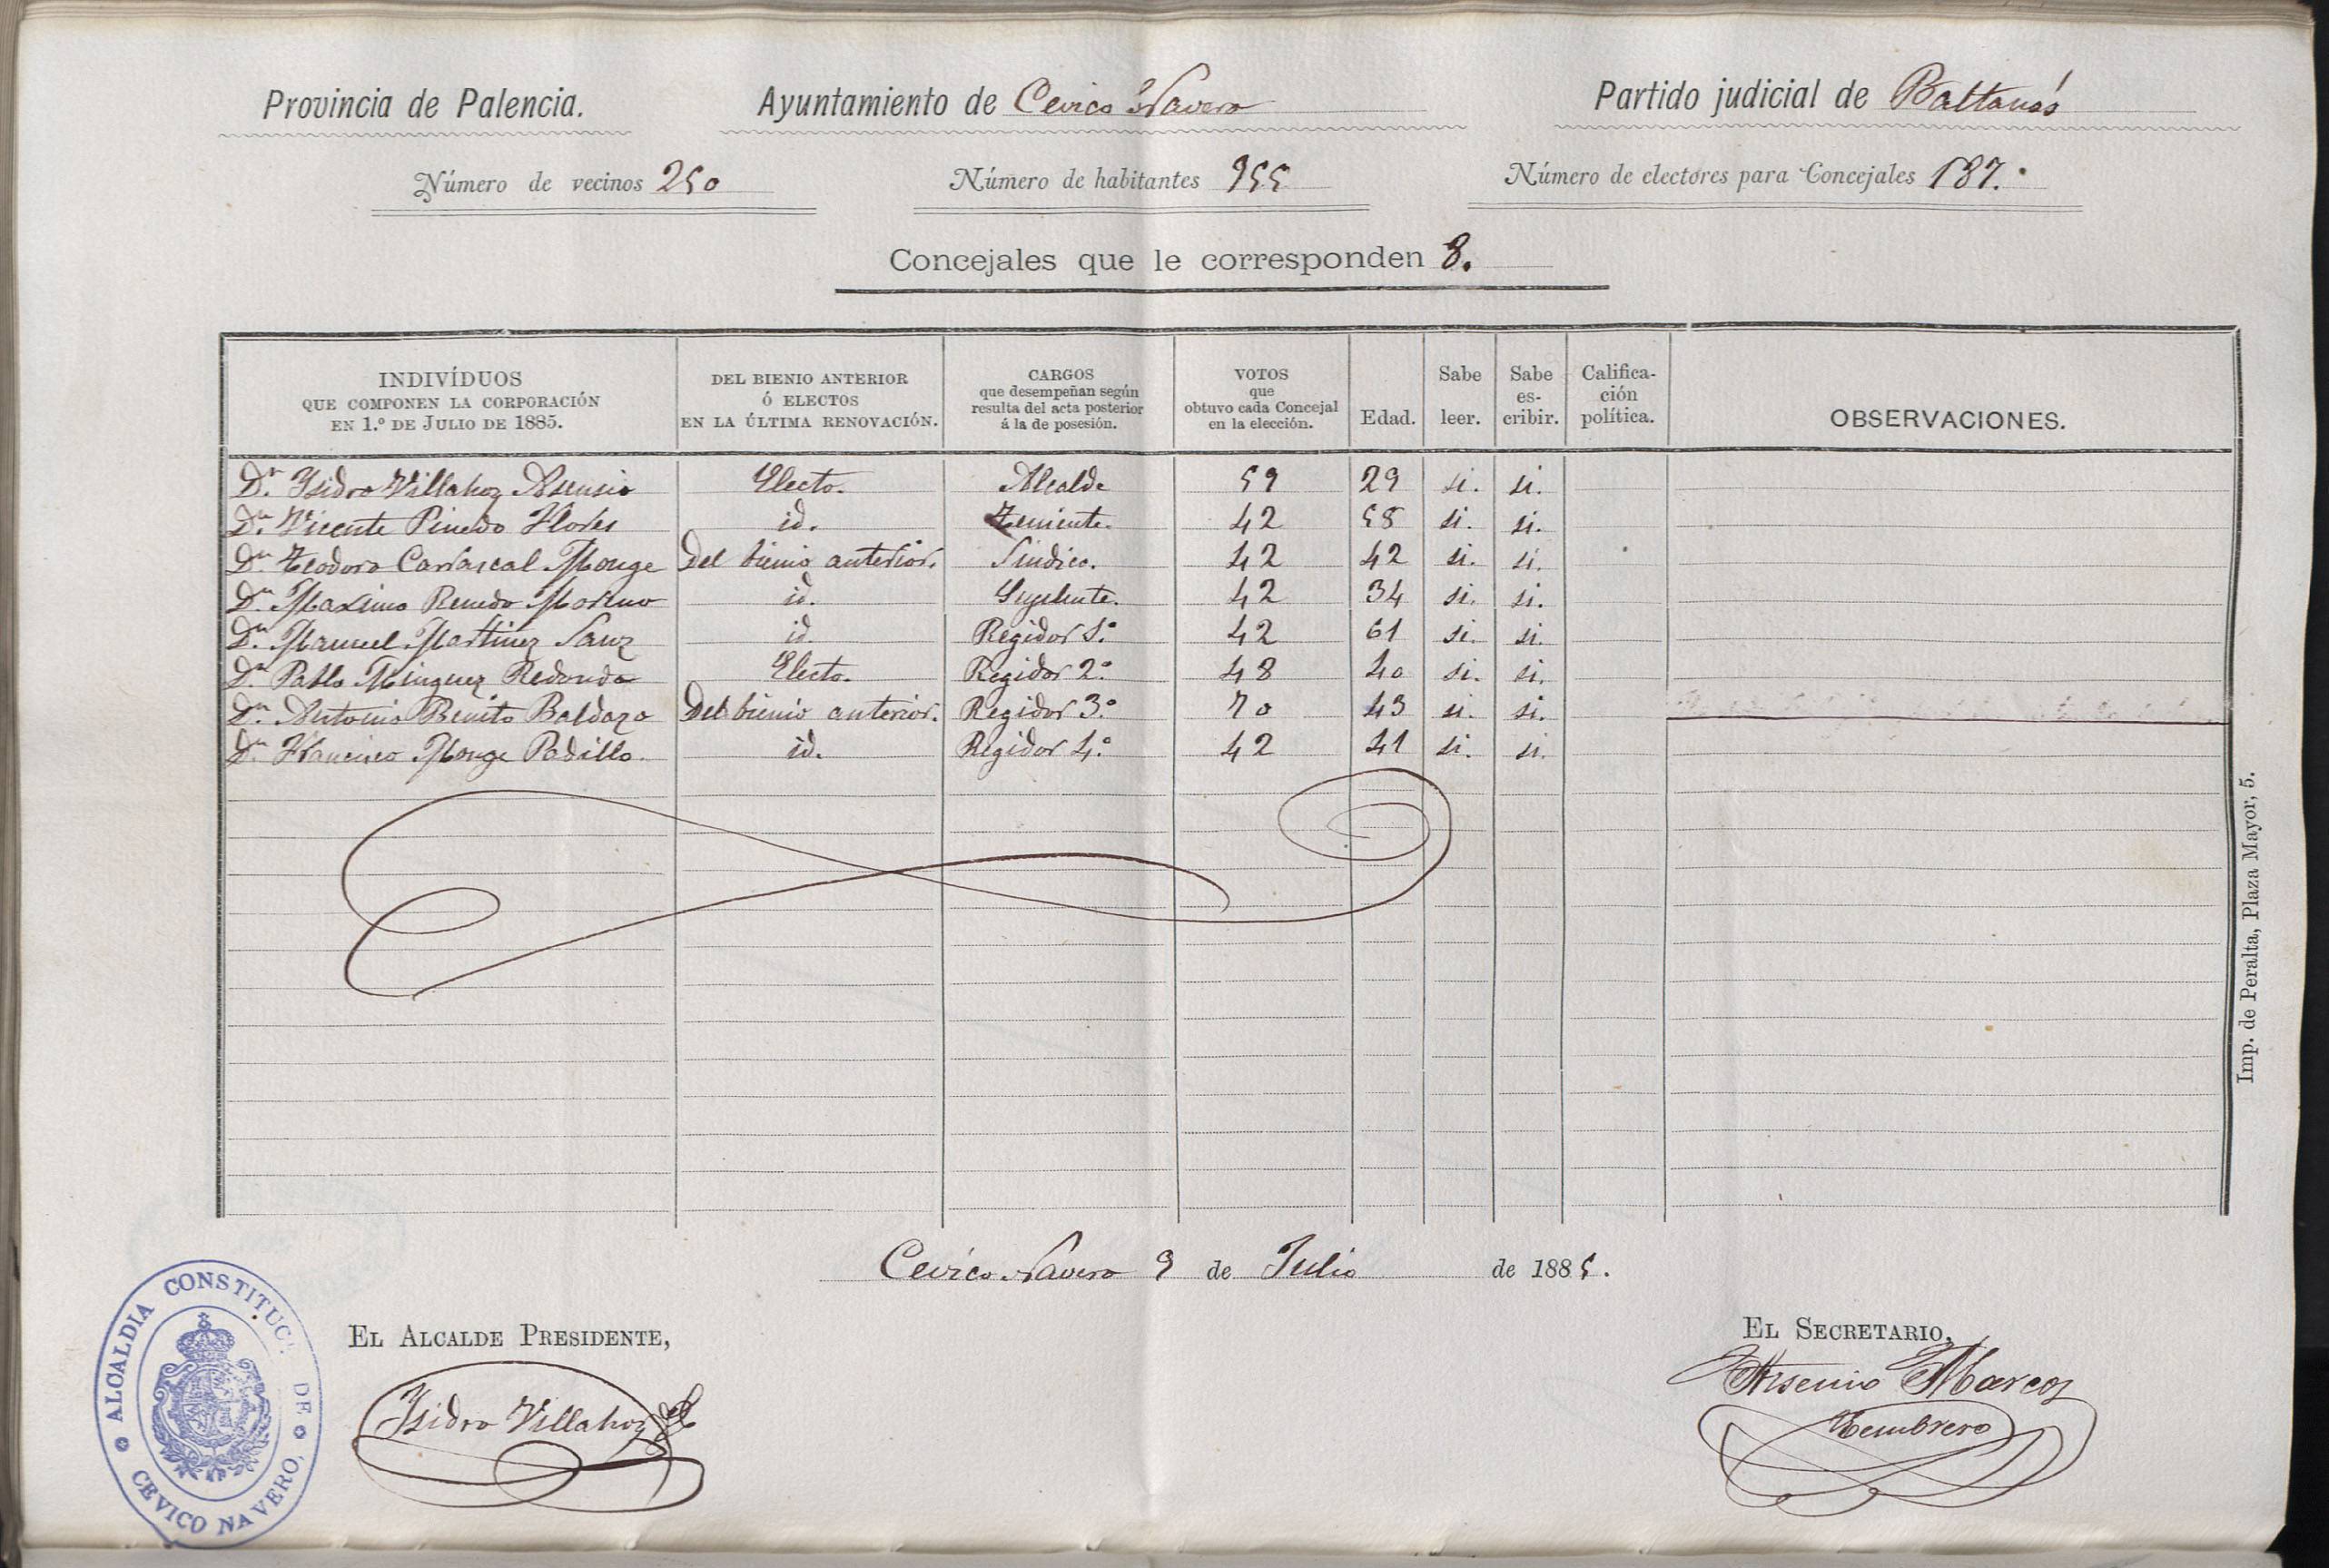 Provincia de Palencia. Ayuntamiento de Cevico Navero Partido judicial de Baltanás
Número de vecinos 250 Número de habitantes 955 Número de electores para Concejales 187.
Concejales que le corresponden 8.
INDIVÍDUOS QUE COMPONEN LA CORPORACIÓN EN 1.º DE JULIO DE 1885. DEL BIENIO ANTERIOR Ó ELECTOS EN LA ÚLTIMA RENOVACIÓN. CARGOS que desempeñan según resulta del acta posterior á la de posesión. VOTOS que obtuvo cada Concejal en la elección. Edad. Sabe leer. Sabe es- cribir. Califica- ción política. OBSERVACIONES.
Dn. Isidro Villahoz Asensio Electo. Alcalde 59 29 si. si.
Dn. Vicente Pinedo Flores id. Teniente. 42 58 si. si.
Dn. Teodoro Carrascal Monge Del bienio anterior. Sindico. 42 42 si. si.
Dn. Maximo Renedo Moreno id. Suplente. 42 34 si. si.
Dn. Manuel Martinez Sanz id. Regidor 1.º 42 61 si. si.
Dn. Pablo Minguez Redondo Electo. Regidor 2.º 48 40 si. si.
Dn. Antonio Benito Baldazo Del bienio anterior. Regidor 3.º 70 43 si. si.
Dn. Francisco Monge Padillo. id. Regidor 4.º 42 41 si. si.
Imp. de Peralta, Plaza Mayor, 5.
Cevico Navero 9 de Julio de 1885.
EL ALCALDE PRESIDENTE, EL SECRETARIO,
Isidro Villahoz Arsenio Marcos
Tembrero
ALCALDIA CONSTITUC. DE CEVICO NAVERO,